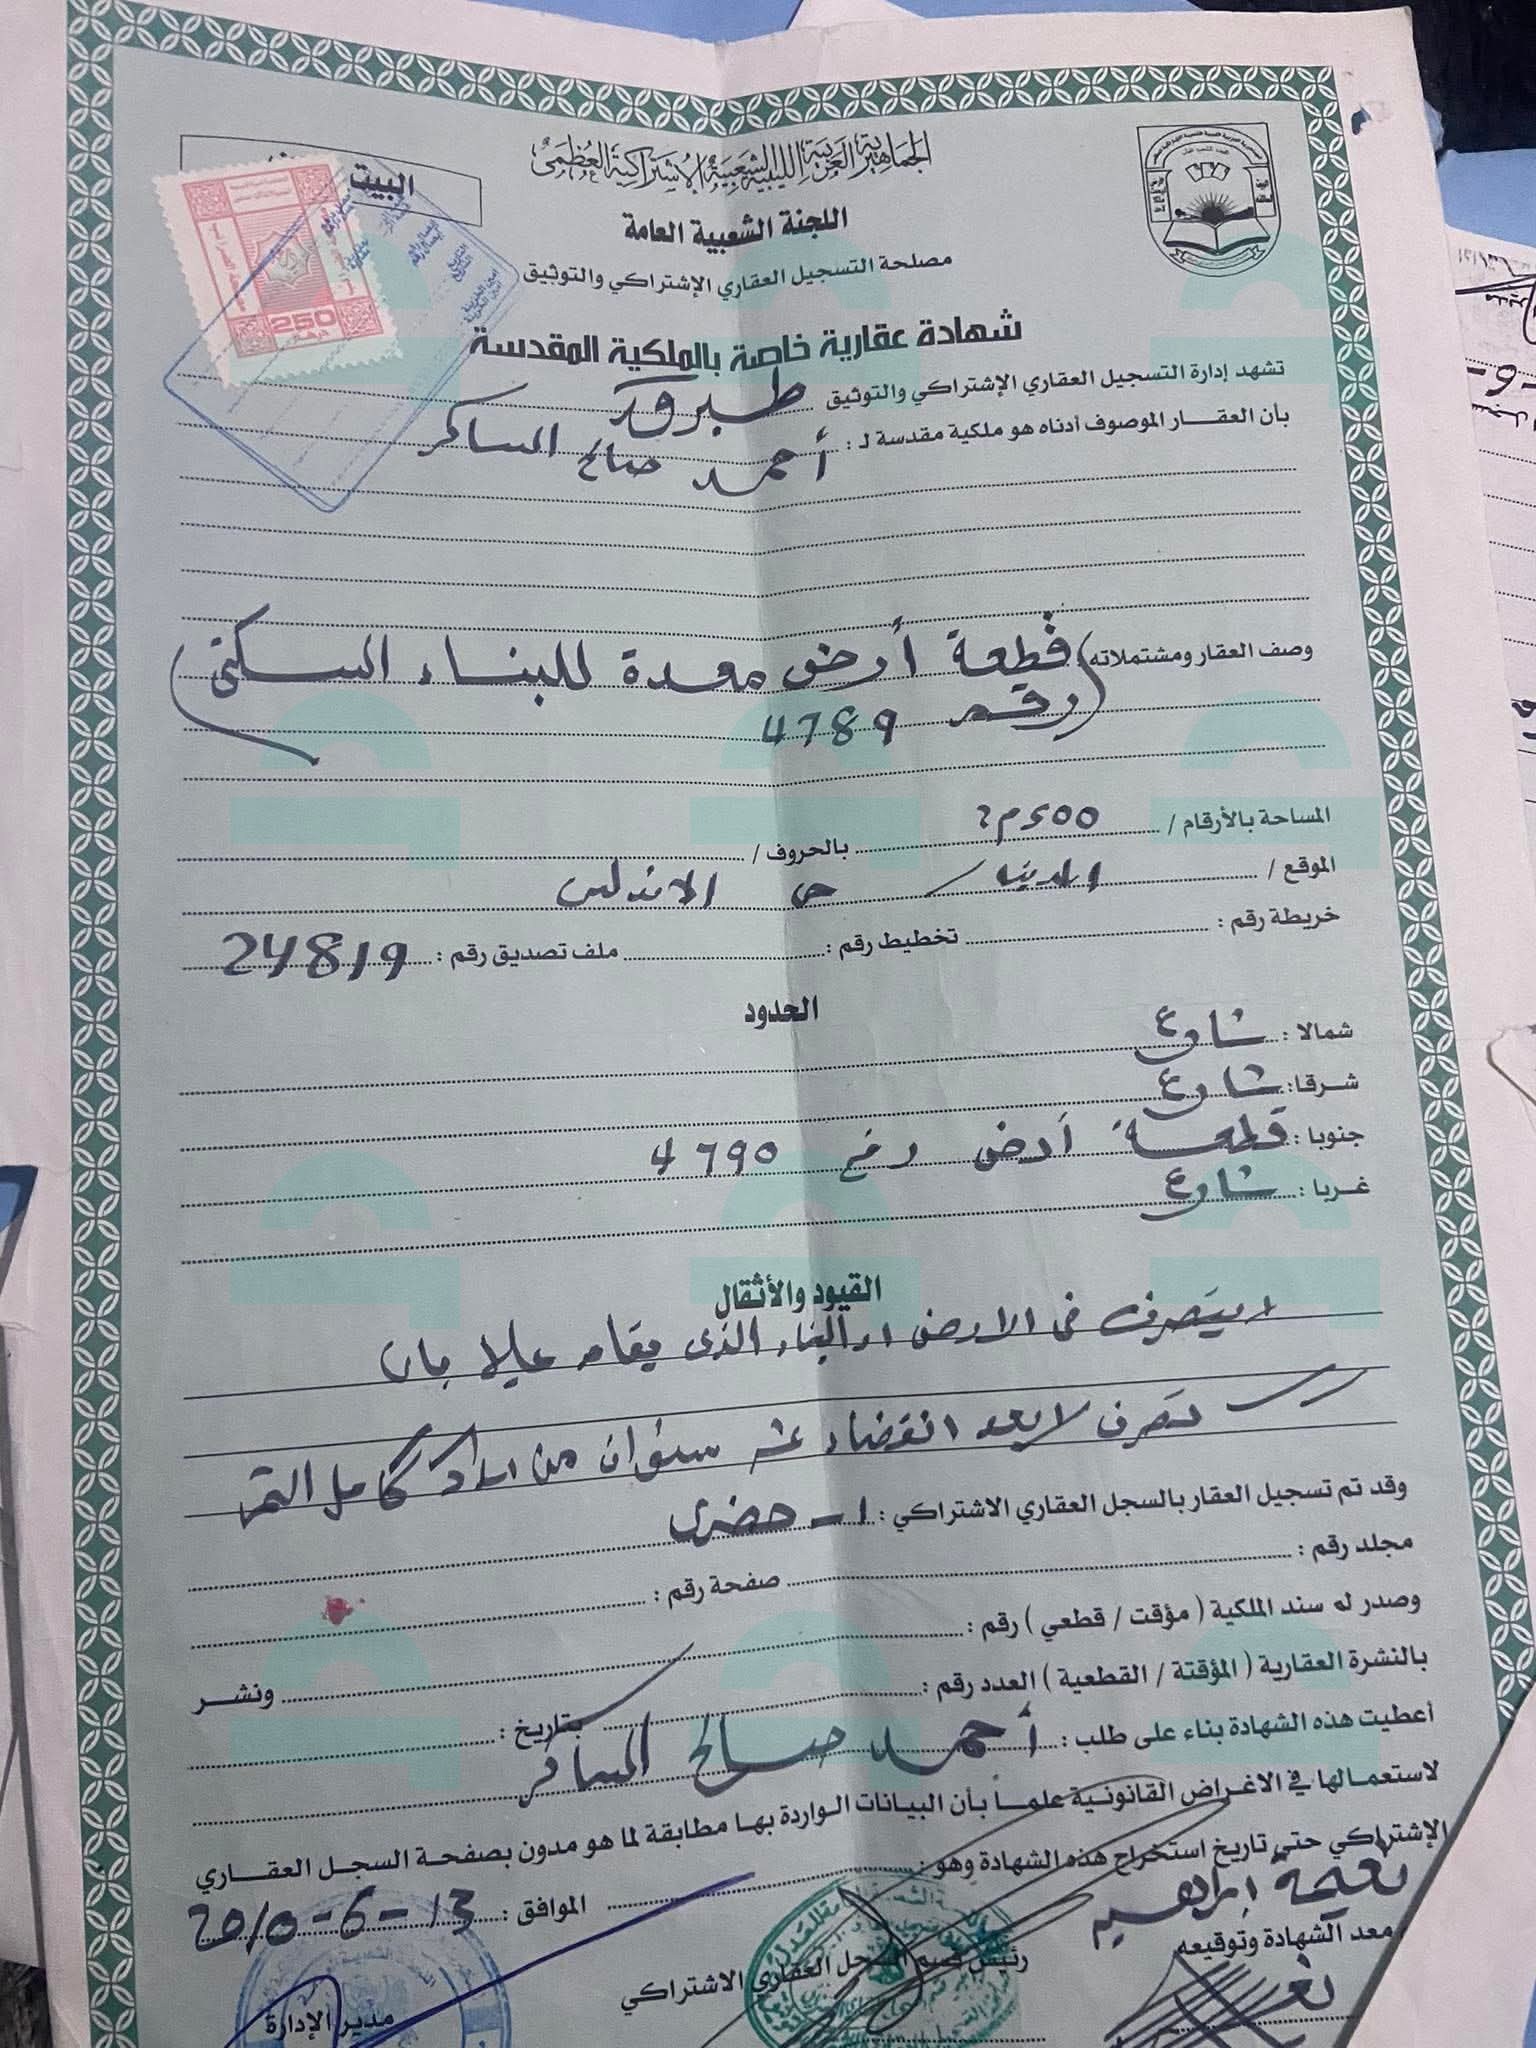 الجماهيرية العربية الليبية الشعبية الاشتراكية العظمى
اللجنة الشعبية العامة
مصلحة التسجيل العقاري الإشتراكي والتوثيق
البيت
250
درهم
شهادة عقارية خاصة بالملكية المقدسة
تشهد إدارة التسجيل العقاري الإشتراكي والتوثيق طبرق
بأن العقار الموصوف أدناه هو ملكية مقدسة لـ : أحمد صالح
وصف العقار ومشتملاته (قطعة أرض معدة للبناء السكني
رقم 4789)
المساحة بالأرقام / 500 م2 بالحروف /
الموقع / المدينة / حي الاندلس
خريطة رقم : تخطيط رقم : ملف تصديق رقم : 24819
الحدود
شمالا : شارع
شرقا : شارع
جنوبا : قطعة أرض رقم 4790
غربا : شارع
القيود والأثقال
لا يتصرف في الارض او البناء الذي يقام عليها بأي
تصرف إلا بعد انقضاء عشر سنوات من سداد كامل الثمن
وقد تم تسجيل العقار بالسجل العقاري الاشتراكي : 1 - حضري
مجلد رقم : صفحة رقم :
وصدر له سند الملكية ( مؤقت / قطعي ) رقم : ونشر
بالنشرة العقارية ( المؤقتة / القطعية ) العدد رقم : بتاريخ :
أعطيت هذه الشهادة بناء على طلب : أحمد صالح
لاستعمالها في الاغراض القانونية علما بأن البيانات الواردة بها مطابقة لما هو مدون بصفحة السجل العقاري
الإشتراكي حتى تاريخ استخراج هذه الشهادة وهو :
الموافق : 13-6-2010
نعيمة ابراهيم
معد الشهادة وتوقيعه
رئيس قسم السجل العقاري الاشتراكي
مدير الإدارة